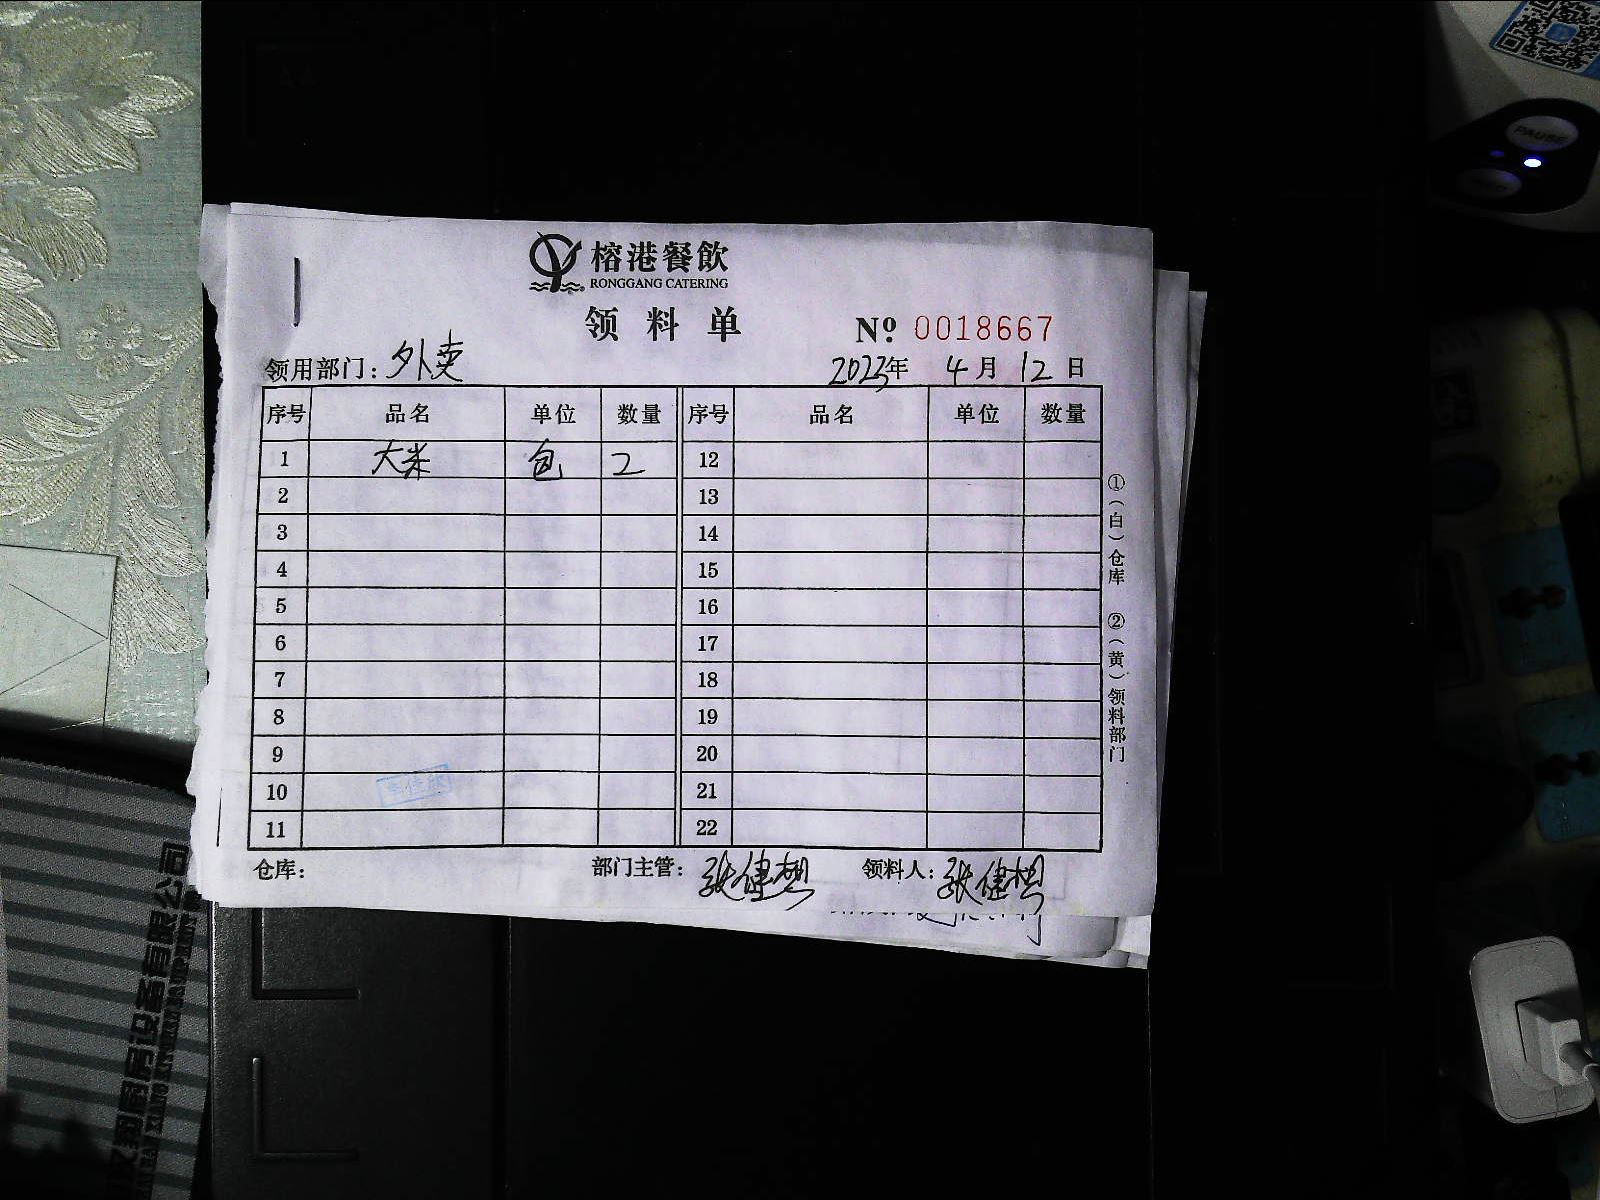 榕港餐飲
RONGGANG CATERING
领料单
№ 0018667
领用部门：外卖
2023年 4月 12日
序号 品名 单位 数量 序号 品名 单位 数量
1 大米 包 2 12
2 13
3 14
4 15
5 16
6 17
7 18
8 19
9 20
10 21
11 22
仓库： 部门主管： 领料人：
①（白）仓库 ②（黄）领料部门
PAUSE
翔厨房设备有限公司